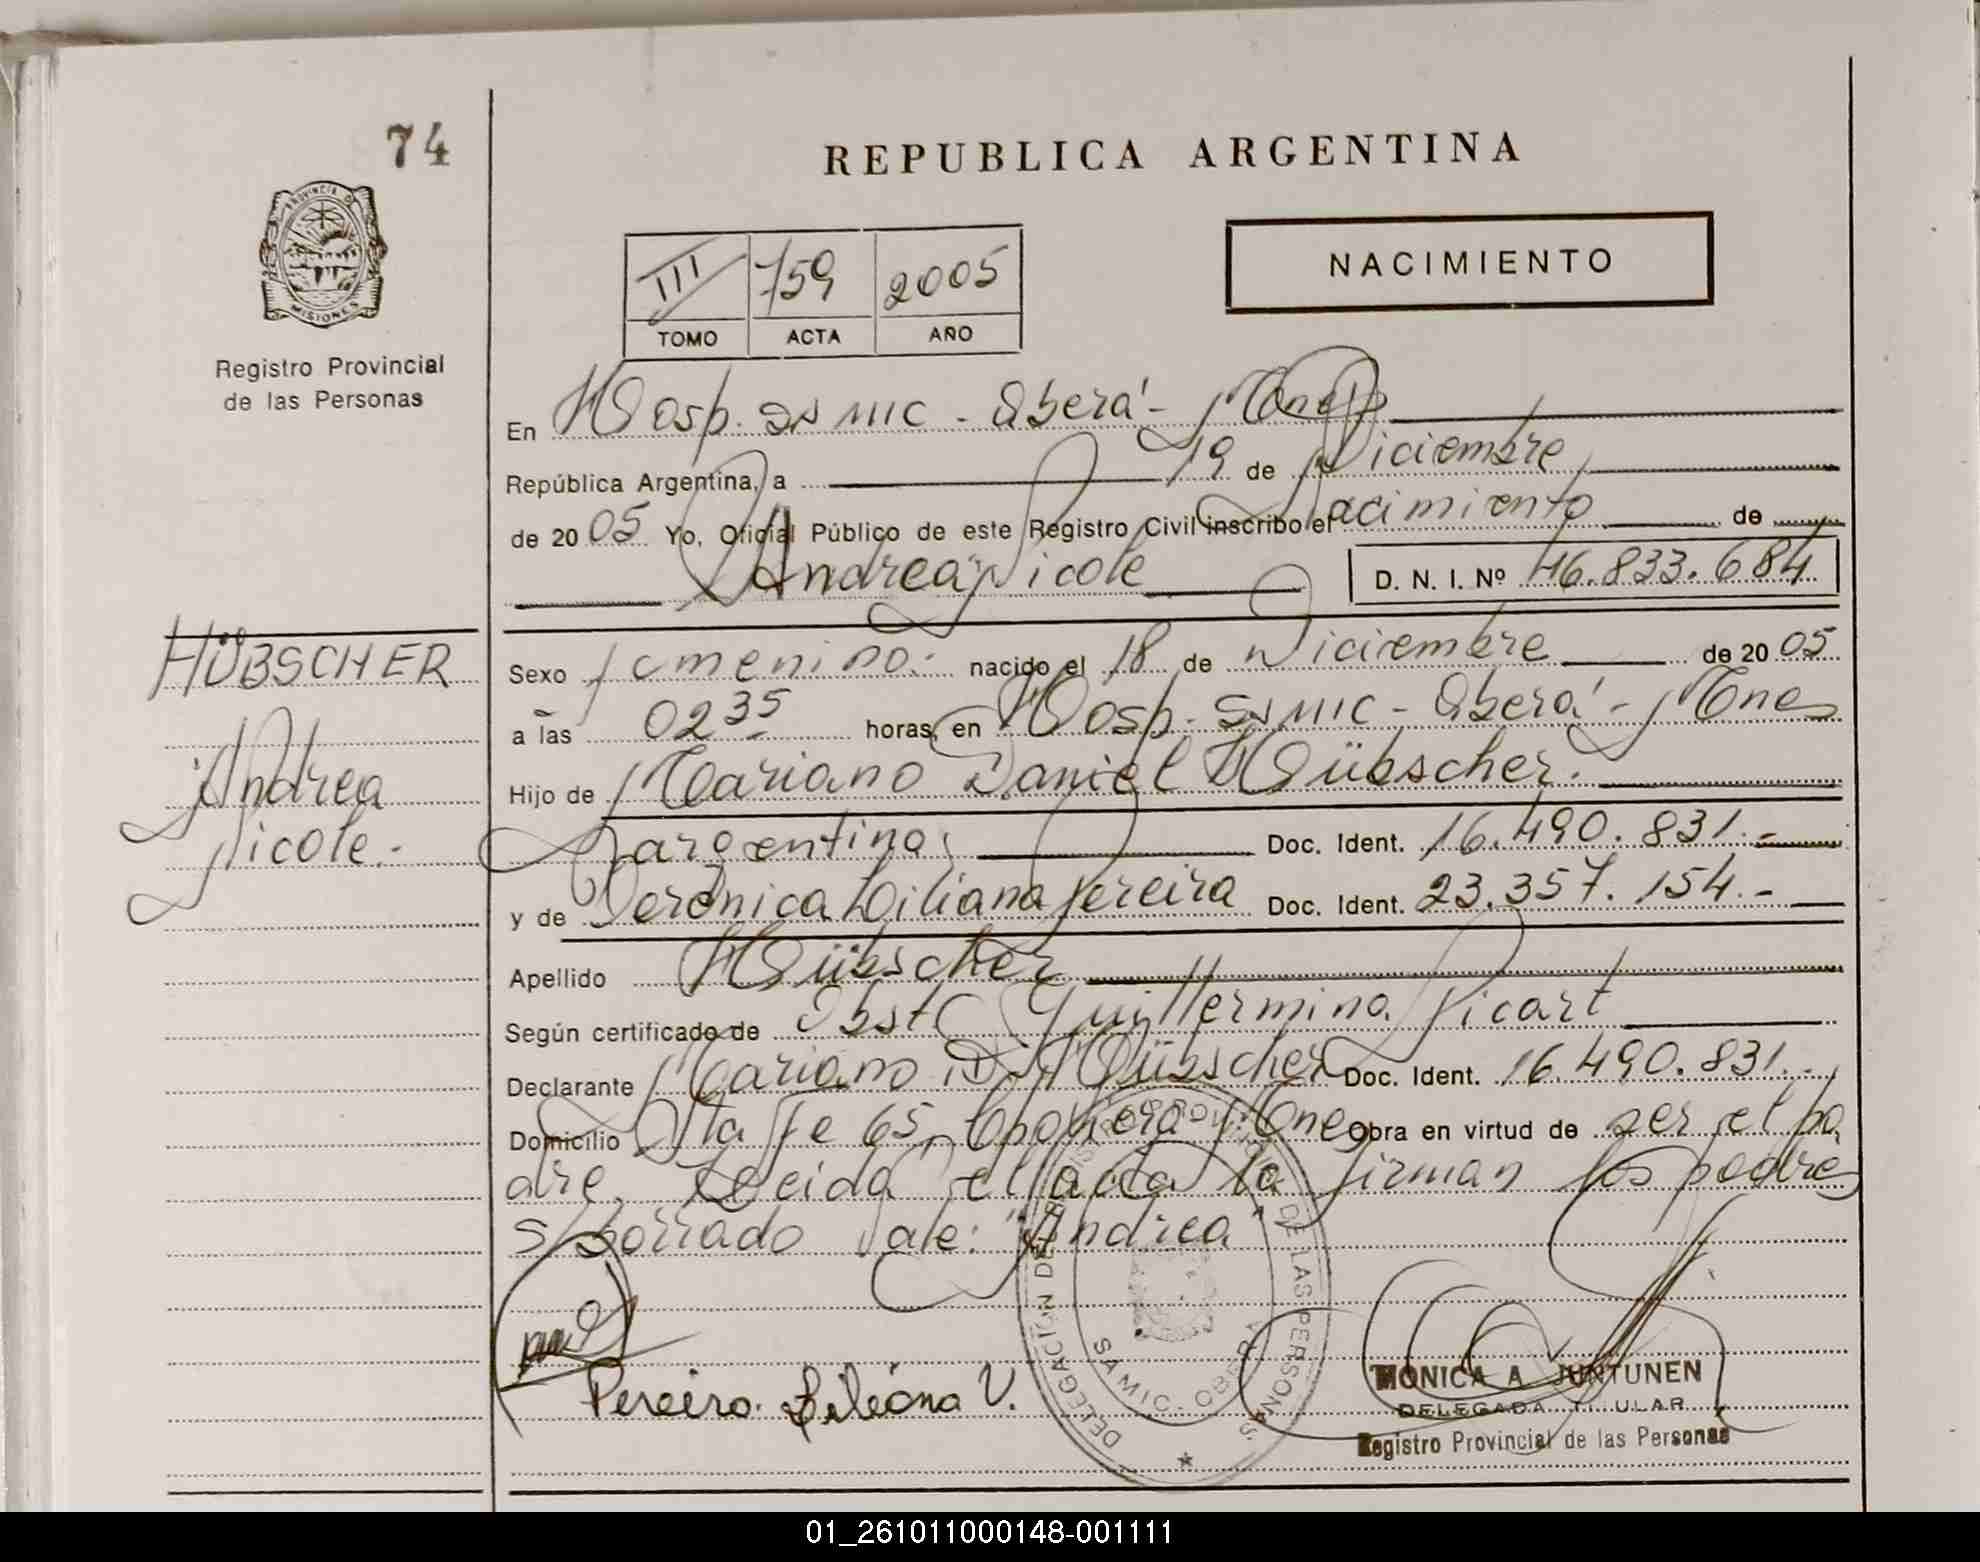 74
REPUBLICA ARGENTINA
PROVINCIA DE
MISIONES
Registro Provincial
de las Personas
III 759 2005
TOMO ACTA AÑO
NACIMIENTO
En Hosp. SAMIC - Oberá - Mnes
República Argentina, a 19 de Diciembre
de 2005 Yo, Oficial Público de este Registro Civil inscribo el Nacimiento de
Andrea Nicole D. N. I. Nº 46.833.684
HÜBSCHER
Andrea
Nicole.-
Sexo femenino. nacido el 18 de Diciembre de 2005
a las 02 35 horas, en Hosp. SAMIC - Oberá - Mnes
Hijo de Mariano Daniel Hübscher.
argentino, Doc. Ident. 16.490.831.-
y de Verónica Liliana Pereira Doc. Ident. 23.357.154.-
Apellido Hübscher
Según certificado de Obst. Guillermina Picart
Declarante Mariano D. Hübscher Doc. Ident. 16.490.831.-
Domicilio Sta Fe 65, Mnes Obra en virtud de ser el pa
dre. Leida el acta la firman los padres
s/borrado Vale: "Andrea"
Pereira Liliana V.
DELEGACION DEL REGISTRO PROVINCIAL DE LAS PERSONAS
SAMIC - OBERA
MONICA A. JUNTUNEN
DELEGADA TITULAR
Registro Provincial de las Personas
01_261011000148-001111